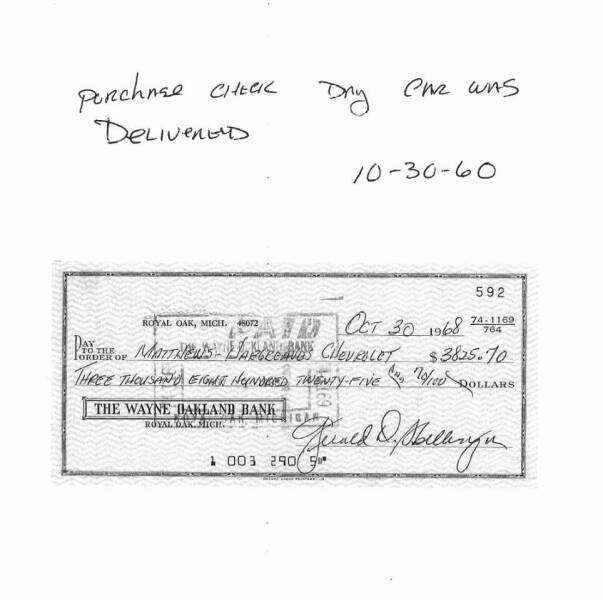 Purchase Check Day Car was
Delivered
10-30-60
592
ROYAL OAK, MICH. 48072
PAID
Oct 30 1968
74-1169
764
THE WAYNE OAKLAND BANK
PAY
TO THE
ORDER OF Matthews- Chevrolet $3825.70
Three Thousand Eight Hundred Twenty-Five and 70/100 DOLLARS
THE WAYNE OAKLAND BANK
ROYAL OAK, MICHIGAN
ROYAL OAK, MICH.
Gerald D.
1 003 290 5⑈